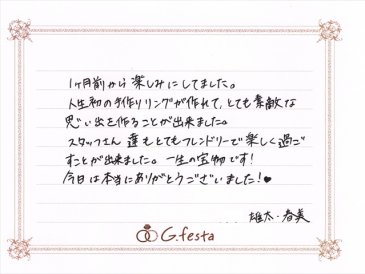 1ヶ月前から楽しみにしてました。
人生初の手作りリングが作れて、とても素敵な
思い出を作ることが出来ました。
スタッフさん達もとてもフレンドリーで楽しく過ご
すことが出来ました。一生の宝物です!
今日は本当にありがとうございました!♥
... 雄太・春美
G.festa